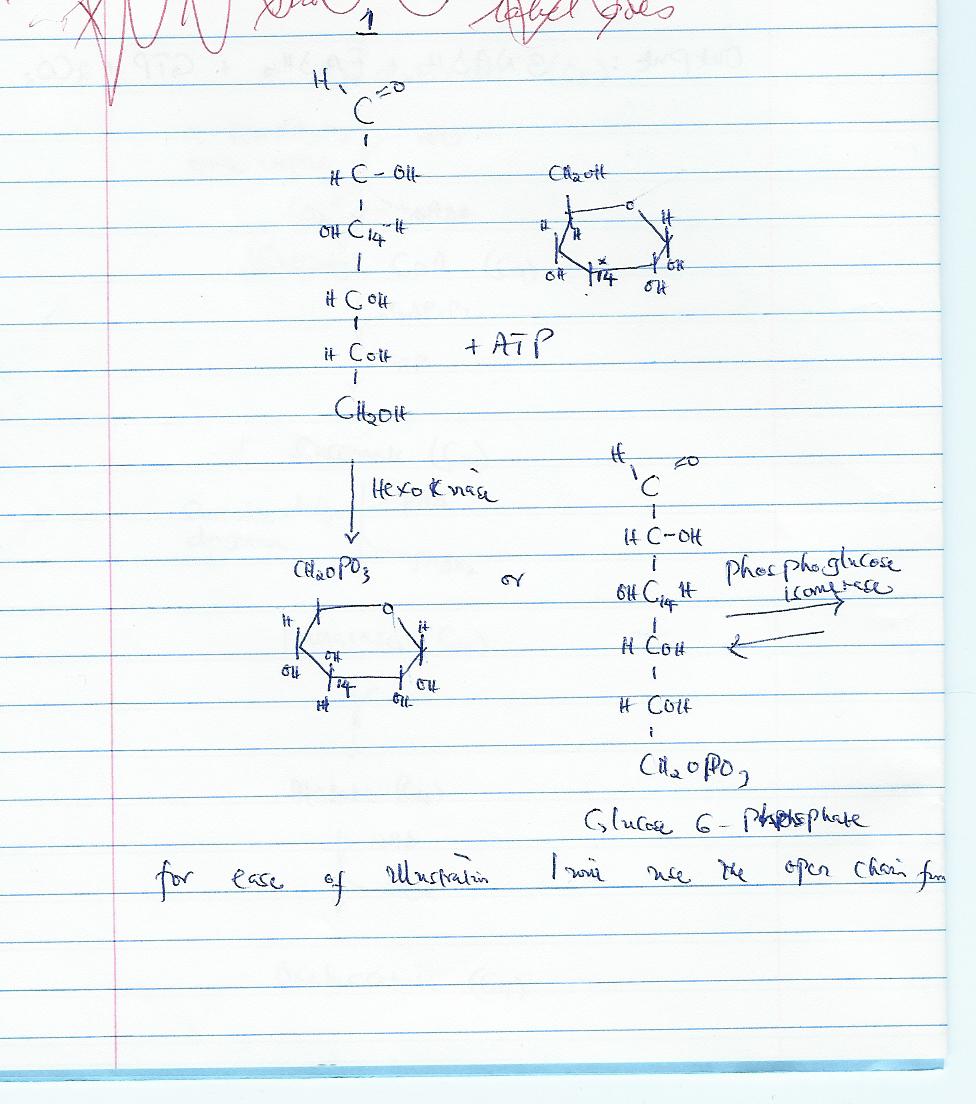 label goes
1
H
C=O
H C - OH
OH C14 - H
H C OH
H C OH
CH2OH
CH2OH
O
H
H
H
OH
x
14
OH
OH
+ ATP
Hexokinase
CH2OPO3
O
H
H
OH
OH
14
H
OH
OH
or
H
=O
C
H C-OH
OH C14 H
H COH
H COH
CH2OPO3
Phosphoglucose
isomerase
Glucose 6- Phosphate
for ease of illustration I will use the open chain form